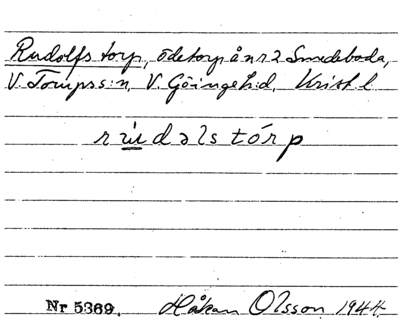 Rudolfs torp, ödetorp å nr 2 Smedeboda,
V. Torups s:n, V. Göingeh:d, Krist. l
rúdəls tórp
Nr 5369. Håkan Olsson 1944.